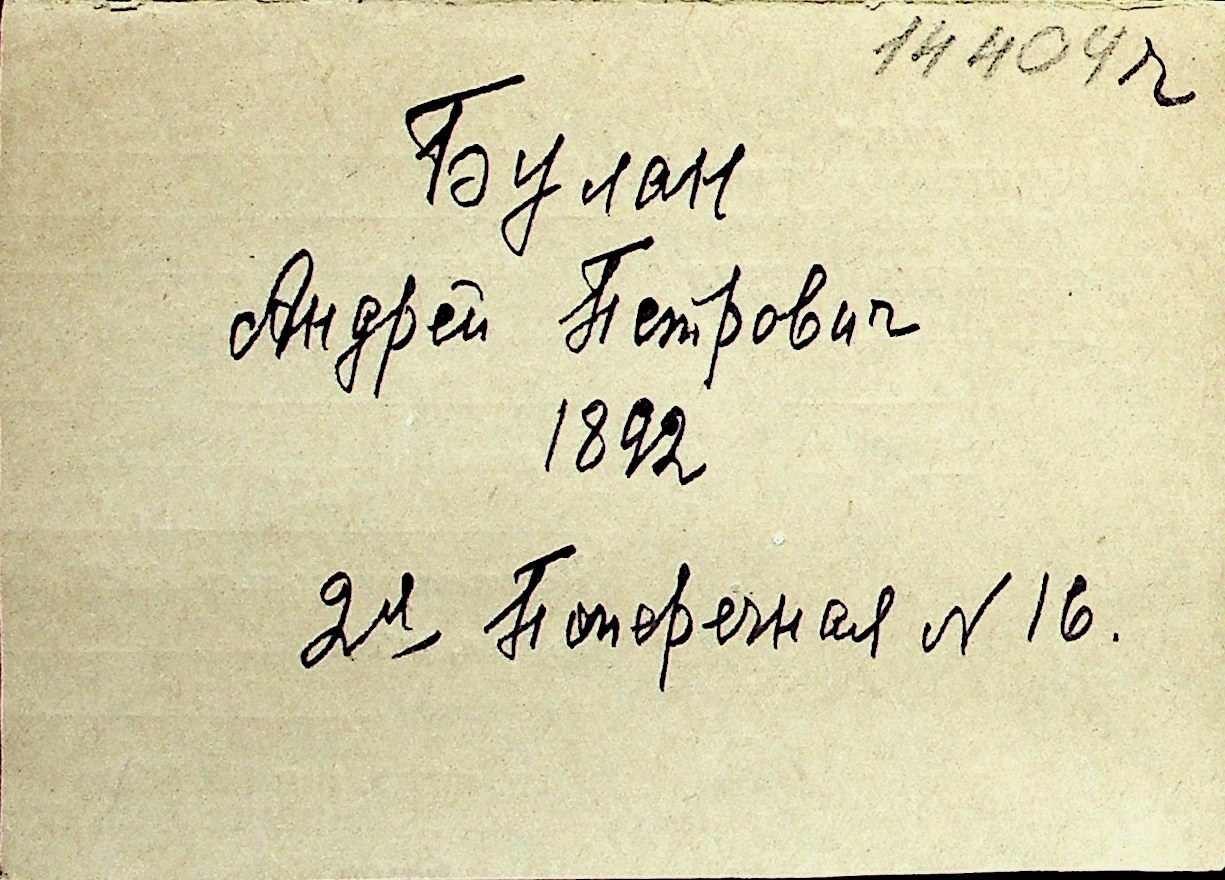 14404 ч
Булан
Андрей Петрович
1892
2я Поперечная N 16.